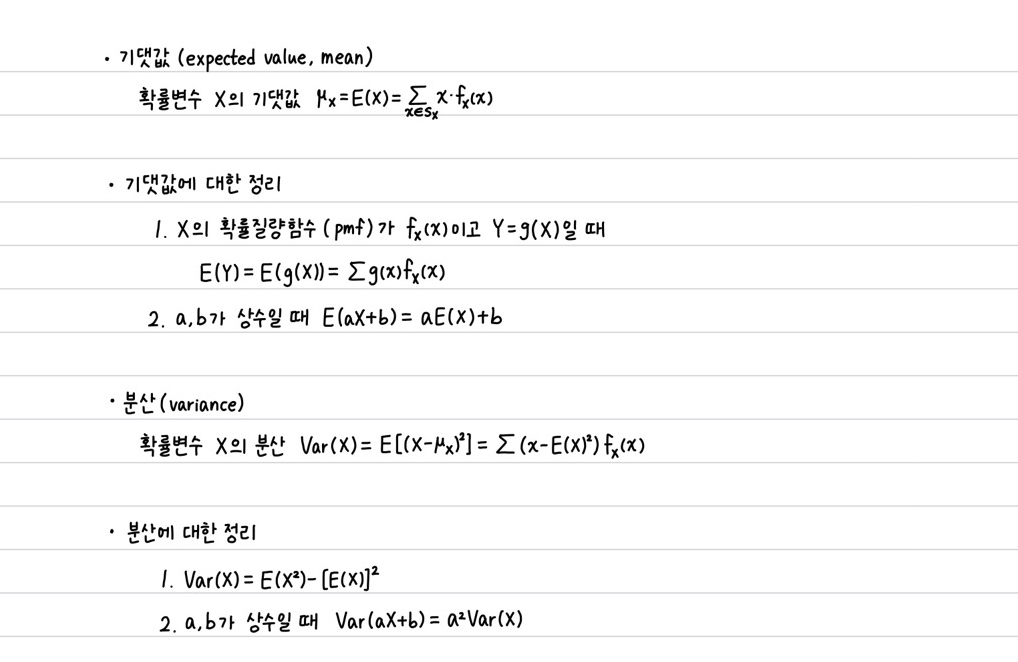 · 기댓값 (expected value, mean)
확률변수 X의 기댓값 μₓ=E(X)=∑x∈Sₓ x·fₓ(x)
· 기댓값에 대한 정리
1. X의 확률질량함수(pmf)가 fₓ(x)이고 Y=g(X)일 때
E(Y)=E(g(X))=∑g(x)fₓ(x)
2. a,b가 상수일 때 E(aX+b)=aE(X)+b
· 분산(variance)
확률변수 X의 분산 Var(X)=E[(X-μₓ)²]=∑(x-E(X)²)fₓ(x)
· 분산에 대한 정리
1. Var(X)=E(X²)-[E(X)]²
2. a,b가 상수일 때 Var(aX+b)=a²Var(X)